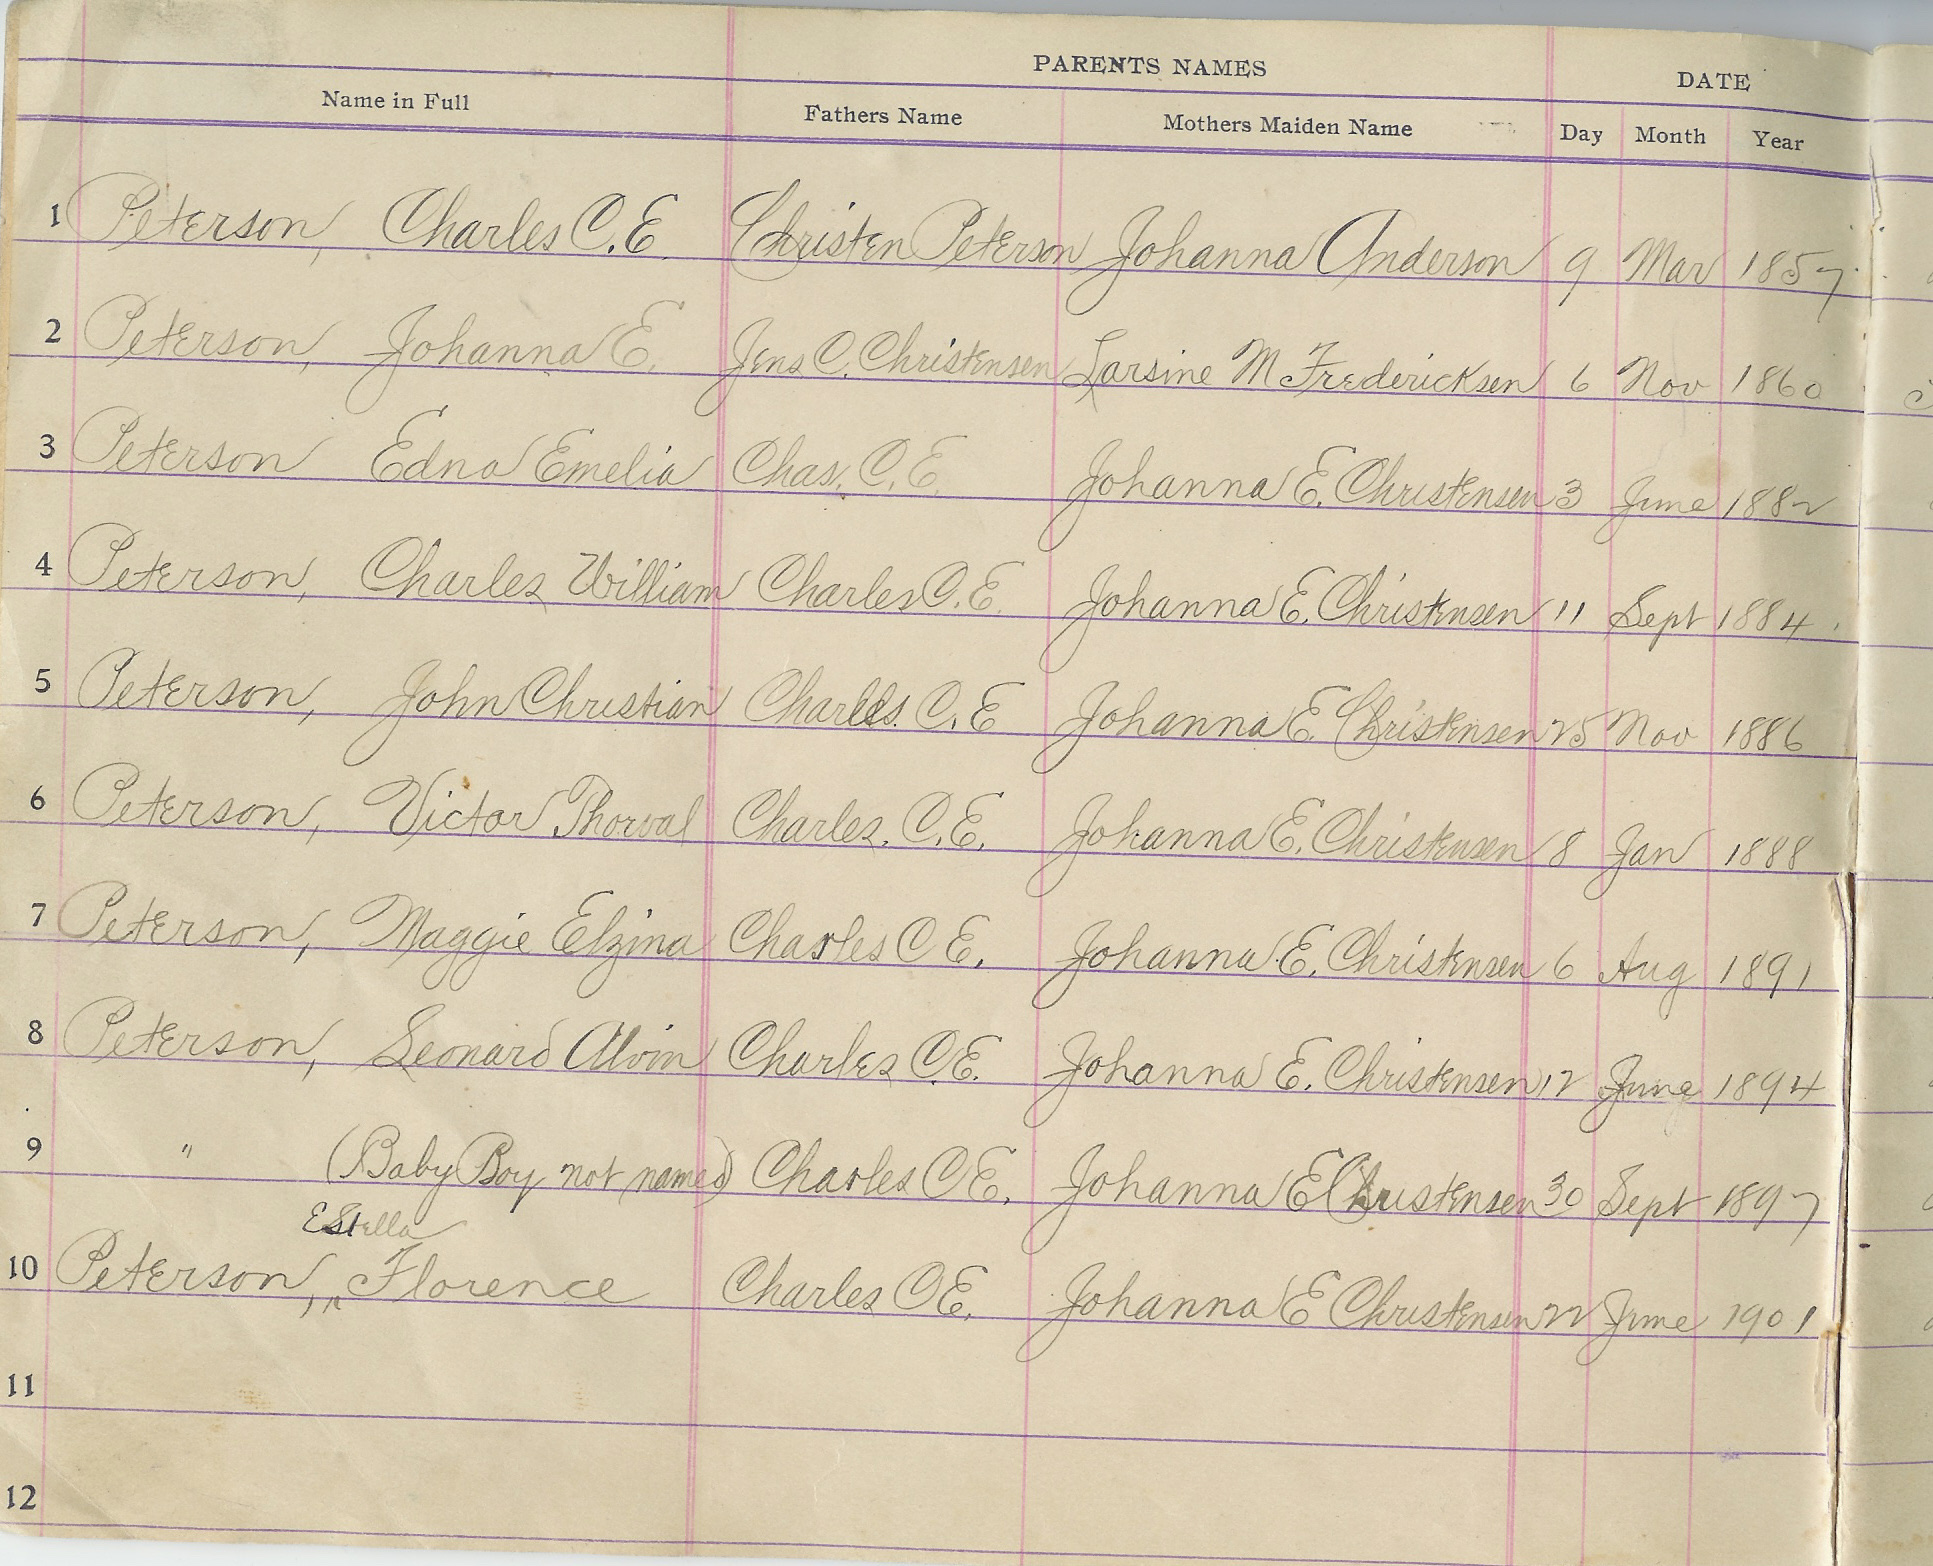 PARENTS NAMES DATE
Name in Full Fathers Name Mothers Maiden Name Day Month Year
1 Peterson, Charles C. E. Christen Peterson Johanna Anderson 9 Mar 1857
2 Peterson, Johanna E. Jens C. Christensen Larsine M Fredericksen 6 Nov 1860
3 Peterson Edna Emelia Chas. C. E. Johanna E. Christensen 3 June 1882
4 Peterson, Charles William Charles C. E. Johanna E. Christensen 11 Sept 1884
5 Peterson, John Christian Charles. C. E Johanna E. Christensen 25 Nov 1886
6 Peterson, Victor Thorval Charles. C. E. Johanna E. Christensen 8 Jan 1888
7 Peterson, Maggie Elzina Charles C E. Johanna E. Christensen 6 Aug 1891
8 Peterson, Leonard Alvin Charles C. E. Johanna E. Christensen 12 June 1894
9 " (Baby Boy not named) Charles C E. Johanna E Christensen 30 Sept 1897
Estella
10 Peterson, Florence Charles C E. Johanna E Christensen 22 June 1901
11
12